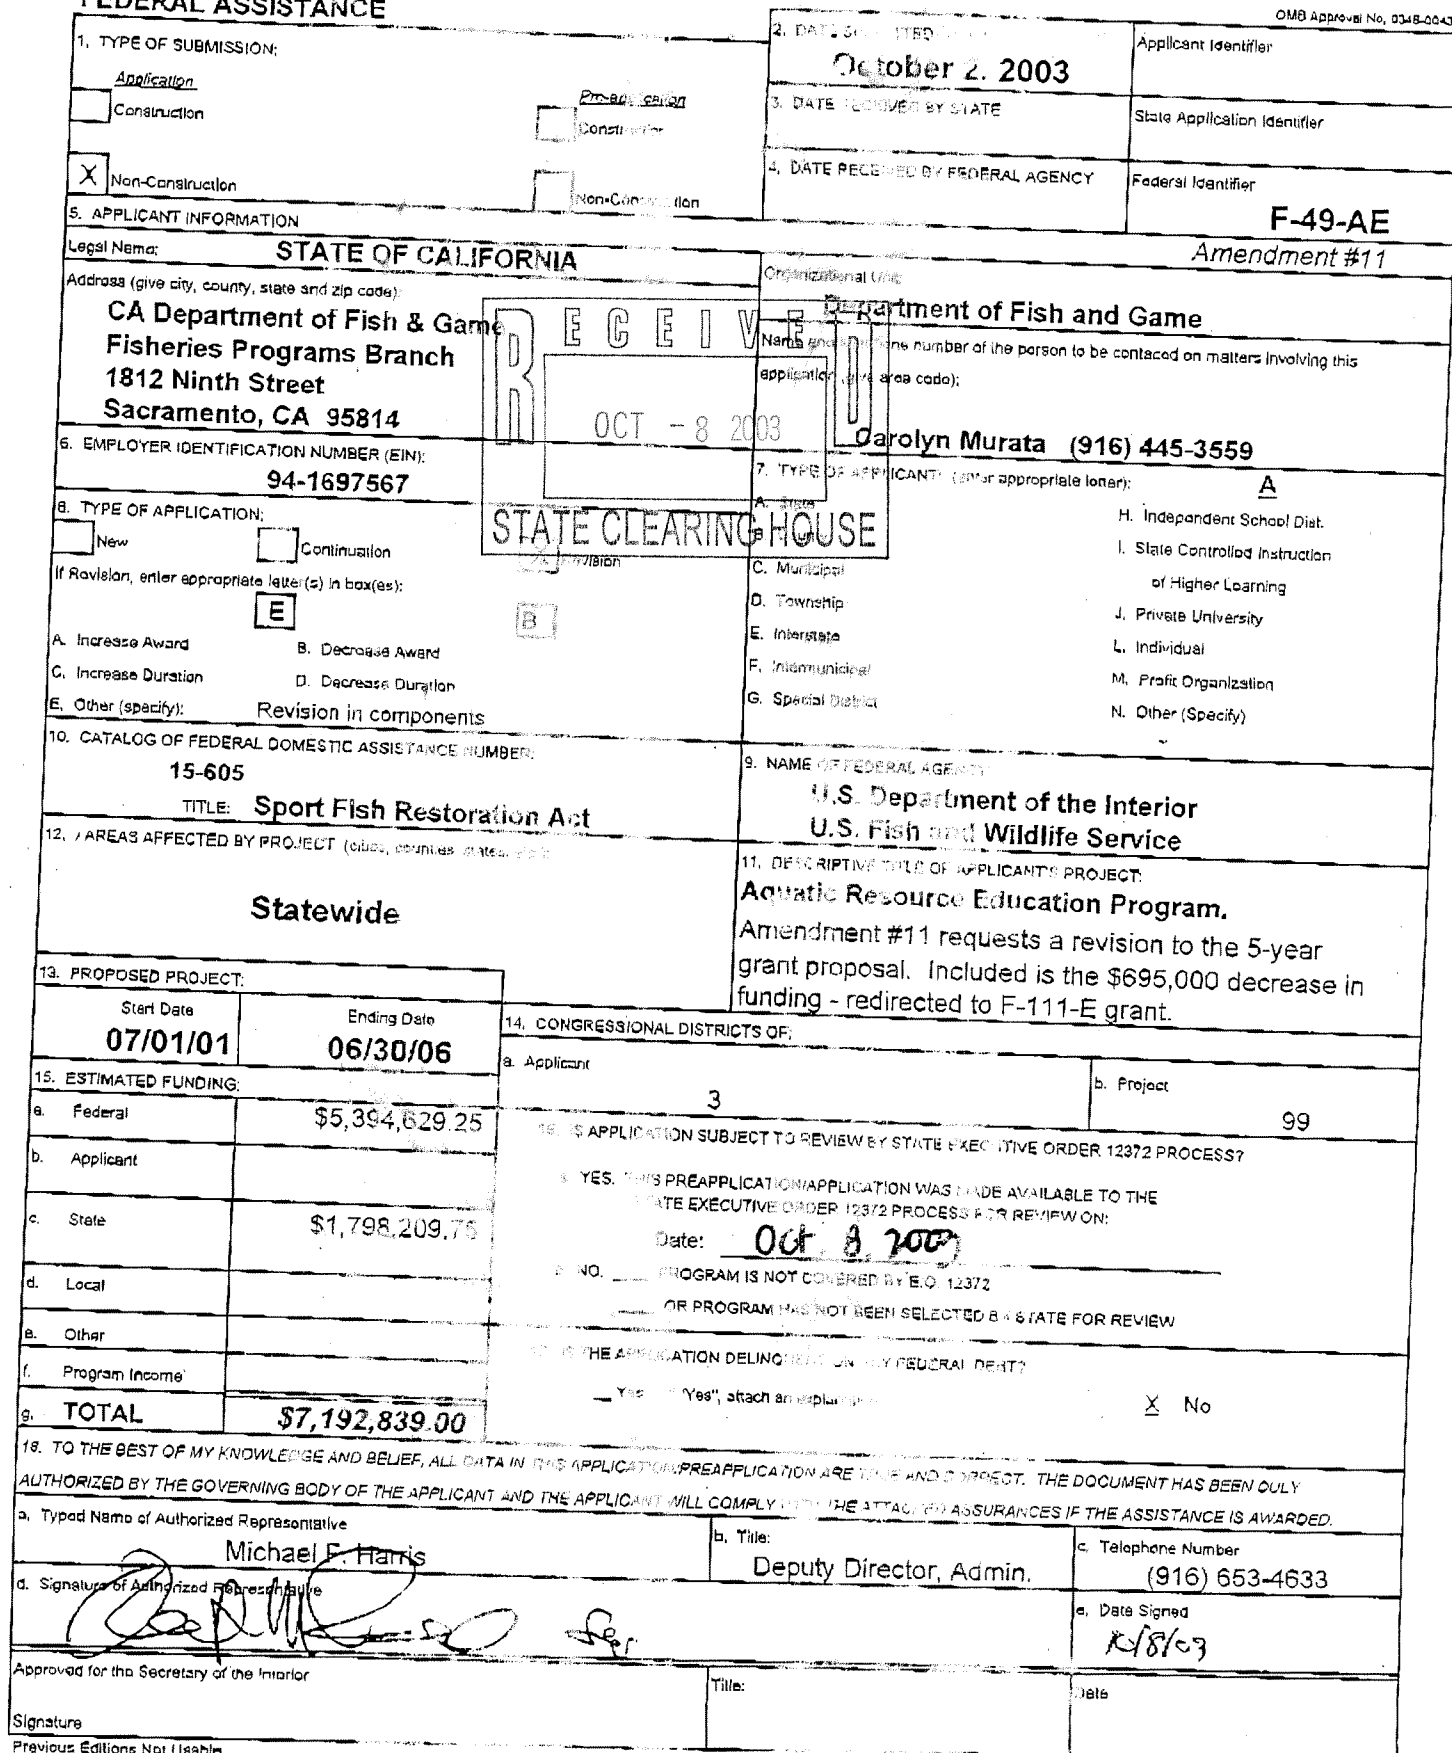 FEDERAL ASSISTANCE
OMB Approval No. 0348-0043
1. TYPE OF SUBMISSION:
Application
Construction
X Non-Construction
Non-Construction
2. DATE
October 2. 2003
Applicant Identifier
3. DATE RECEIVED BY STATE
State Application Identifier
4. DATE RECEIVED BY FEDERAL AGENCY
Federal Identifier
F-49-AE
Amendment #11
5. APPLICANT INFORMATION
Legal Name:
STATE OF CALIFORNIA
Organizational Unit
Department of Fish and Game
Address (give city, county, state and zip code):
CA Department of Fish & Game
Fisheries Programs Branch
1812 Ninth Street
Sacramento, CA 95814
RECEIVED
OCT - 8 2003
STATE CLEARING HOUSE
Name and number of the person to be contaced on matters involving this
application area code):
Carolyn Murata (916) 445-3559
6. EMPLOYER IDENTIFICATION NUMBER (EIN):
94-1697567
7. TYPE OF APPLICANT: appropriate letter):
A
A. State
B.
C. Municipal
D. Township
E. Interstate
F. Intermunicipal
G. Special District
H. Independent School Dist.
I. State Controlled Instruction
of Higher Learning
J. Private University
L. Individual
M. Profit Organization
N. Other (Specify)
8. TYPE OF APPLICATION:
New
Continuation
Revision
If Revision, enter appropriate letter(s) in box(es):
E
B
A. Increase Award
B. Decrease Award
C. Increase Duration
D. Decrease Duration
E. Other (specify):
Revision in components
10. CATALOG OF FEDERAL DOMESTIC ASSISTANCE NUMBER:
15-605
TITLE: Sport Fish Restoration Act
9. NAME OF FEDERAL AGENCY
U.S. Department of the Interior
U.S. Fish and Wildlife Service
12. AREAS AFFECTED BY PROJECT (cities, counties, states,
Statewide
11. DESCRIPTIVE TITLE OF APPLICANT'S PROJECT:
Aquatic Resource Education Program.
Amendment #11 requests a revision to the 5-year
grant proposal. Included is the $695,000 decrease in
funding - redirected to F-111-E grant.
13. PROPOSED PROJECT:
Start Date
07/01/01
Ending Date
06/30/06
14. CONGRESSIONAL DISTRICTS OF:
a. Applicant
3
b. Project
99
15. ESTIMATED FUNDING:
a. Federal
$5,394,629.25
b. Applicant
c. State
$1,798,209.75
d. Local
e. Other
f. Program Income
g. TOTAL
$7,192,839.00
16. IS APPLICATION SUBJECT TO REVIEW BY STATE EXECUTIVE ORDER 12372 PROCESS?
YES. THIS PREAPPLICATION/APPLICATION WAS MADE AVAILABLE TO THE
STATE EXECUTIVE ORDER 12372 PROCESS FOR REVIEW ON:
Date: Oct. 8, 2003
NO. PROGRAM IS NOT COVERED BY E.O. 12372
OR PROGRAM HAS NOT BEEN SELECTED BY STATE FOR REVIEW
IS THE APPLICATION DELINQUENT ON ANY FEDERAL DEBT?
Yes "Yes", attach an
X No
18. TO THE BEST OF MY KNOWLEDGE AND BELIEF, ALL DATA IN THIS APPLICATION/PREAPPLICATION ARE TRUE AND CORRECT. THE DOCUMENT HAS BEEN DULY
AUTHORIZED BY THE GOVERNING BODY OF THE APPLICANT AND THE APPLICANT WILL COMPLY WITH THE ATTACHED ASSURANCES IF THE ASSISTANCE IS AWARDED.
a. Typed Name of Authorized Representative
Michael F. Harris
b. Title:
Deputy Director, Admin.
c. Telephone Number
(916) 653-4633
d. Signature of Authorized Representative
e. Date Signed
10/8/03
Approved for the Secretary of the Interior
Signature
Title:
Date
Previous Editions Not Usable